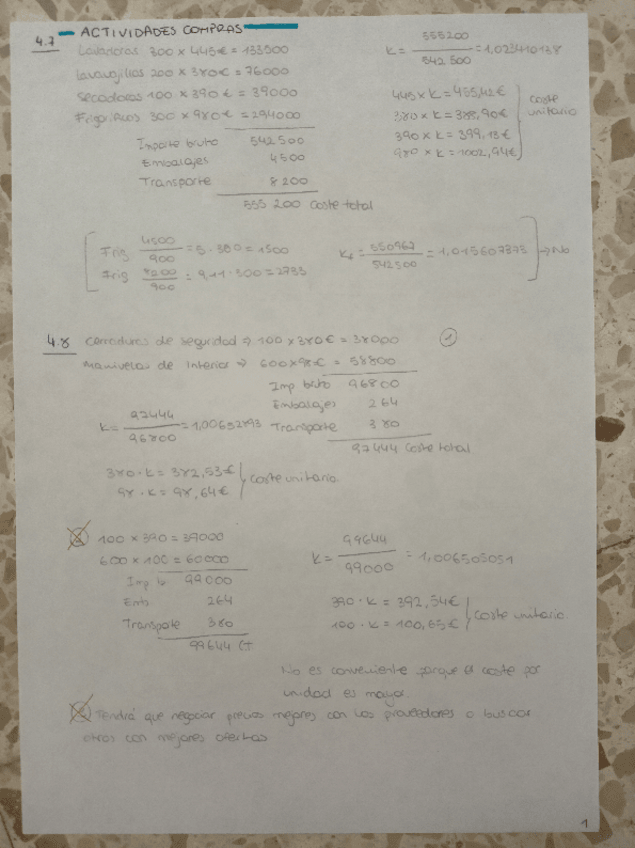 ACTIVIDADES COMPRAS
4.7
Lavadoras 300 x 445€ = 133500
Lavavajillas 200 x 380€ = 76000
Secadoras 100 x 390€ = 39000
Frigoríficos 300 x 980€ = 294000
Importe bruto 542500
Embalajes 4500
Transporte 8200
555 200 Coste total
K = 555200 / 542.500 = 1,023410138
445 x K = 455,42€
380 x K = 388,90€
390 x K = 399,13€
980 x K = 1002,94€
Coste unitario
Frig 4500 / 900 = 5 · 300 = 1500
Frig 8200 / 900 = 9,11 · 300 = 2733
= 550967 / 542500 = 1,015607373 → No
4.8 Cerraduras de seguridad ⇒ 100 x 380€ = 38000 1
Manivelas de interior ⇒ 600 x 98€ = 58800
Imp bruto 96800
Embalajes 264
Transporte 380
97444 Coste total
K = 97444 / 96800 = 1,00652893
380 · K = 382,53€
98 · K = 98,64€
Coste unitario
100 x 390 = 39000
600 x 100 = 60000
Imp b. 99000
Emb 264
Transporte 380
99644 CT
K = 99644 / 99000 = 1,006505051
390 · K = 392,54€
100 · K = 100,65€
Coste unitario
No es conveniente porque el coste por
unidad es mayor.
Tendrá que negociar precios mejores con los proveedores o buscar
otros con mejores ofertas
1